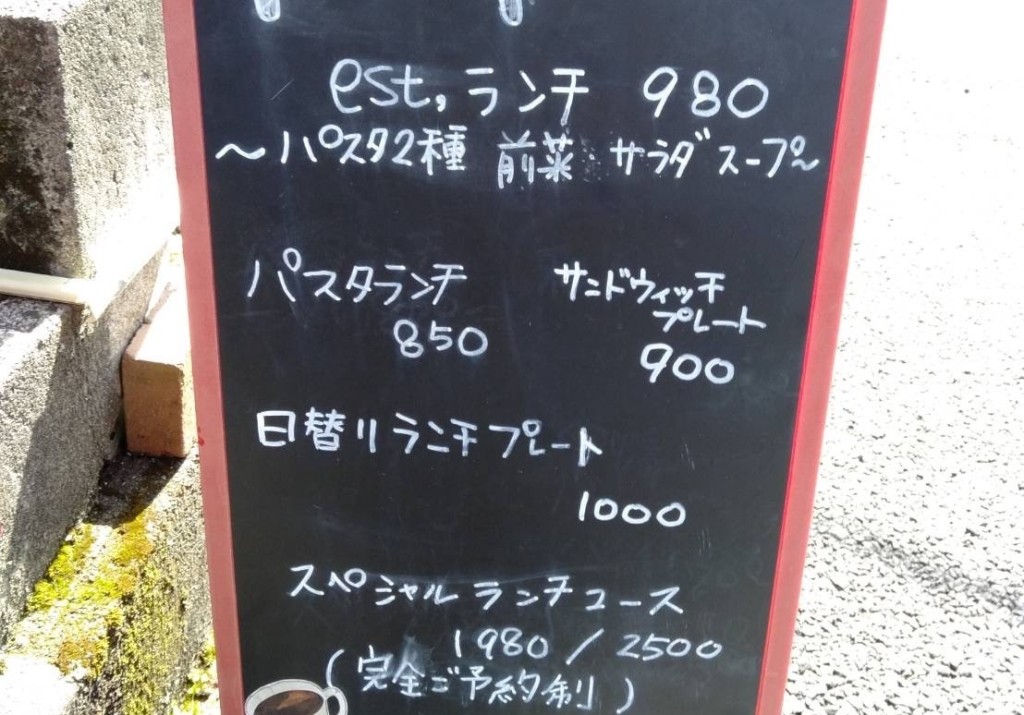 est, ランチ 980
〜パスタ2種 前菜 サラダ スープ〜
パスタランチ
850
サンドウィッチ
プレート
900
日替りランチプレート
1000
スペシャルランチコース
1980 / 2500
(完全ご予約制)